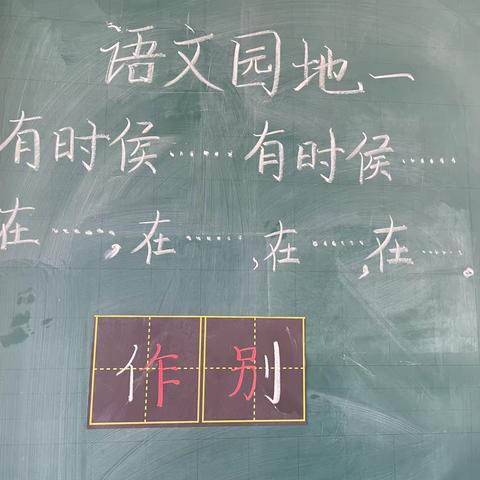 语文园地一
有时侯……有时侯……
在……,在……,在……,在……。
作别